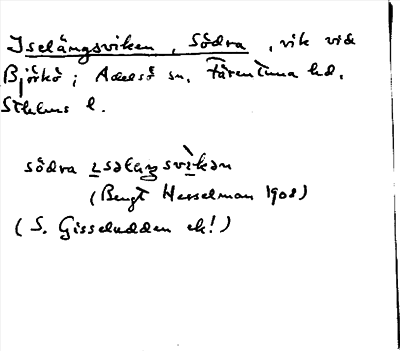 Iselängsviken, Södra, vik vid
Björkö; Adelsö sn, Färentuna hd,
Sthlms l.
södra ısəlaŋsvìkən
(Bengt Hesselman 1908)
(S. Gisseludden ek!)